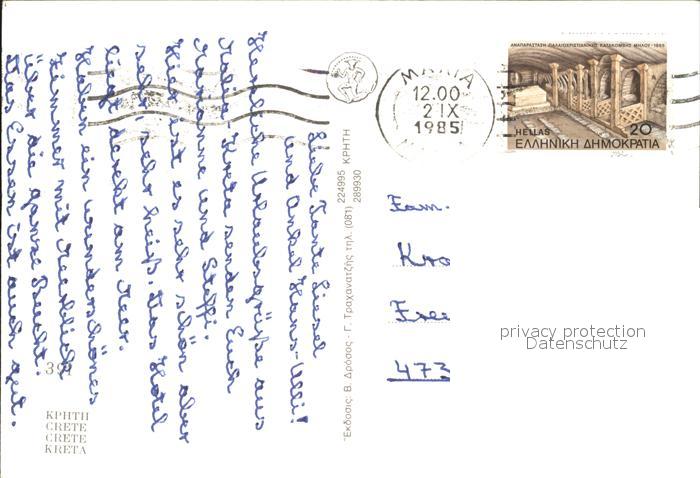 Liebe Tante Liesel
und Onkel Hans-Ulli!
Herzliche Urlaubsgrüße aus
Malia-Kreta senden Euch
Marianne und Steffi.
Hier ist es sehr schön aber
sehr heiß. Das Hotel
liegt direkt am Meer.
Haben ein wunderschönes
Zimmer mit Meerblick
über die ganze Bucht.
Das Essen ist auch gut.
39
ΚΡΗΤΗ
CRETE
CRETE
KRETA
Ἔκδοσις: Β. Δρόσος - Γ. Τραχανατζής τηλ. (081) 224995 ΚΡΗΤΗ
289930
ΜΑΛΙΑ
12.00
2 IX
1985
ΑΝΑΠΑΡΑΣΤΑΣΗ ΠΑΛΑΙΟΧΡΙΣΤΙΑΝΙΚΗΣ ΚΑΤΑΚΟΜΒΗΣ ΜΗΛΟΥ · 1985
HELLAS 20
ΕΛΛΗΝΙΚΗ ΔΗΜΟΚΡΑΤΙΑ
Fam.
Kro
Free
473
privacy protection
Datenschutz